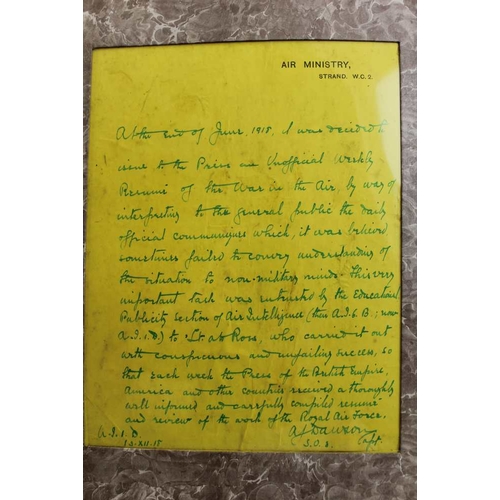 AIR MINISTRY,
STRAND. W.C.2.
At the end of June, 1918, it was decided to
issue to the Press an Unofficial Weekly
Resumé of the War in the Air, by way of
interpreting to the general public the daily
official communiques which, it was believed
sometimes failed to convey understanding of
the situation to non-military minds. This very
important task was entrusted by the Educational
Publicity Section of Air Intelligence (then A.I.6.B.; now
A.I.1.D.) to Lt. Ross, who carried it out
with conspicuous and unfailing success, so
that each week the Press of the British Empire,
America and other countries received a thoroughly
well informed and carefully compiled resumé
and review of the work of the Royal Air Force.
A.I.1.D.
Dawson
Capt.
S.O.